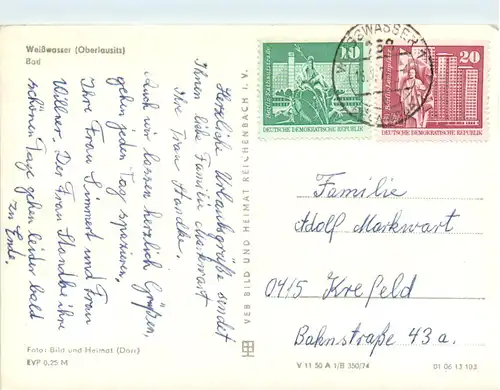 Weißwasser (Oberlausitz)
Bad
Herzliche Urlaubsgrüße sendet
Ihnen liebe Familie Markwart
Ihre Frau
Auch wir lassen herzlich Grüßen,
gehen jeden Tag spazieren,
Ihre Frau Simmert und Frau
Willner. Der Frau ihre
schönen Tage gehen leider bald
zu Ende.
Foto: Bild und Heimat (Darr)
EVP 0,25 M
VEB BILD UND HEIMAT REICHENBACH I. V.
WEISSWASSER
10
DEUTSCHE DEMOKRATISCHE REPUBLIK
20
DEUTSCHE DEMOKRATISCHE REPUBLIK
Familie
Adolf Markwart
0415 Krefeld
Bahnstraße 43a.
V 11 50 A 1/B 350/74
01 06 13 103